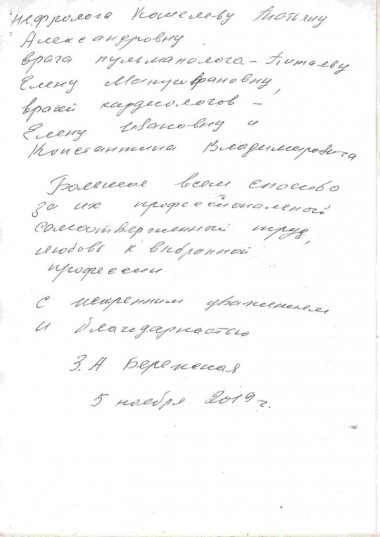 нефролога Кошелеву Татьяну
Александровну
врача пульманолога - Титаеву
Елену
врачей кардиологов -
Елену Ивановну и
Константина Владимировича
Большое всем спасибо
за их профессиональный
самоотверженный труд,
любовь к выбранной
профессии
с искренним уважением
и благодарностью
З.А Бережская
5 ноября 2019 г.